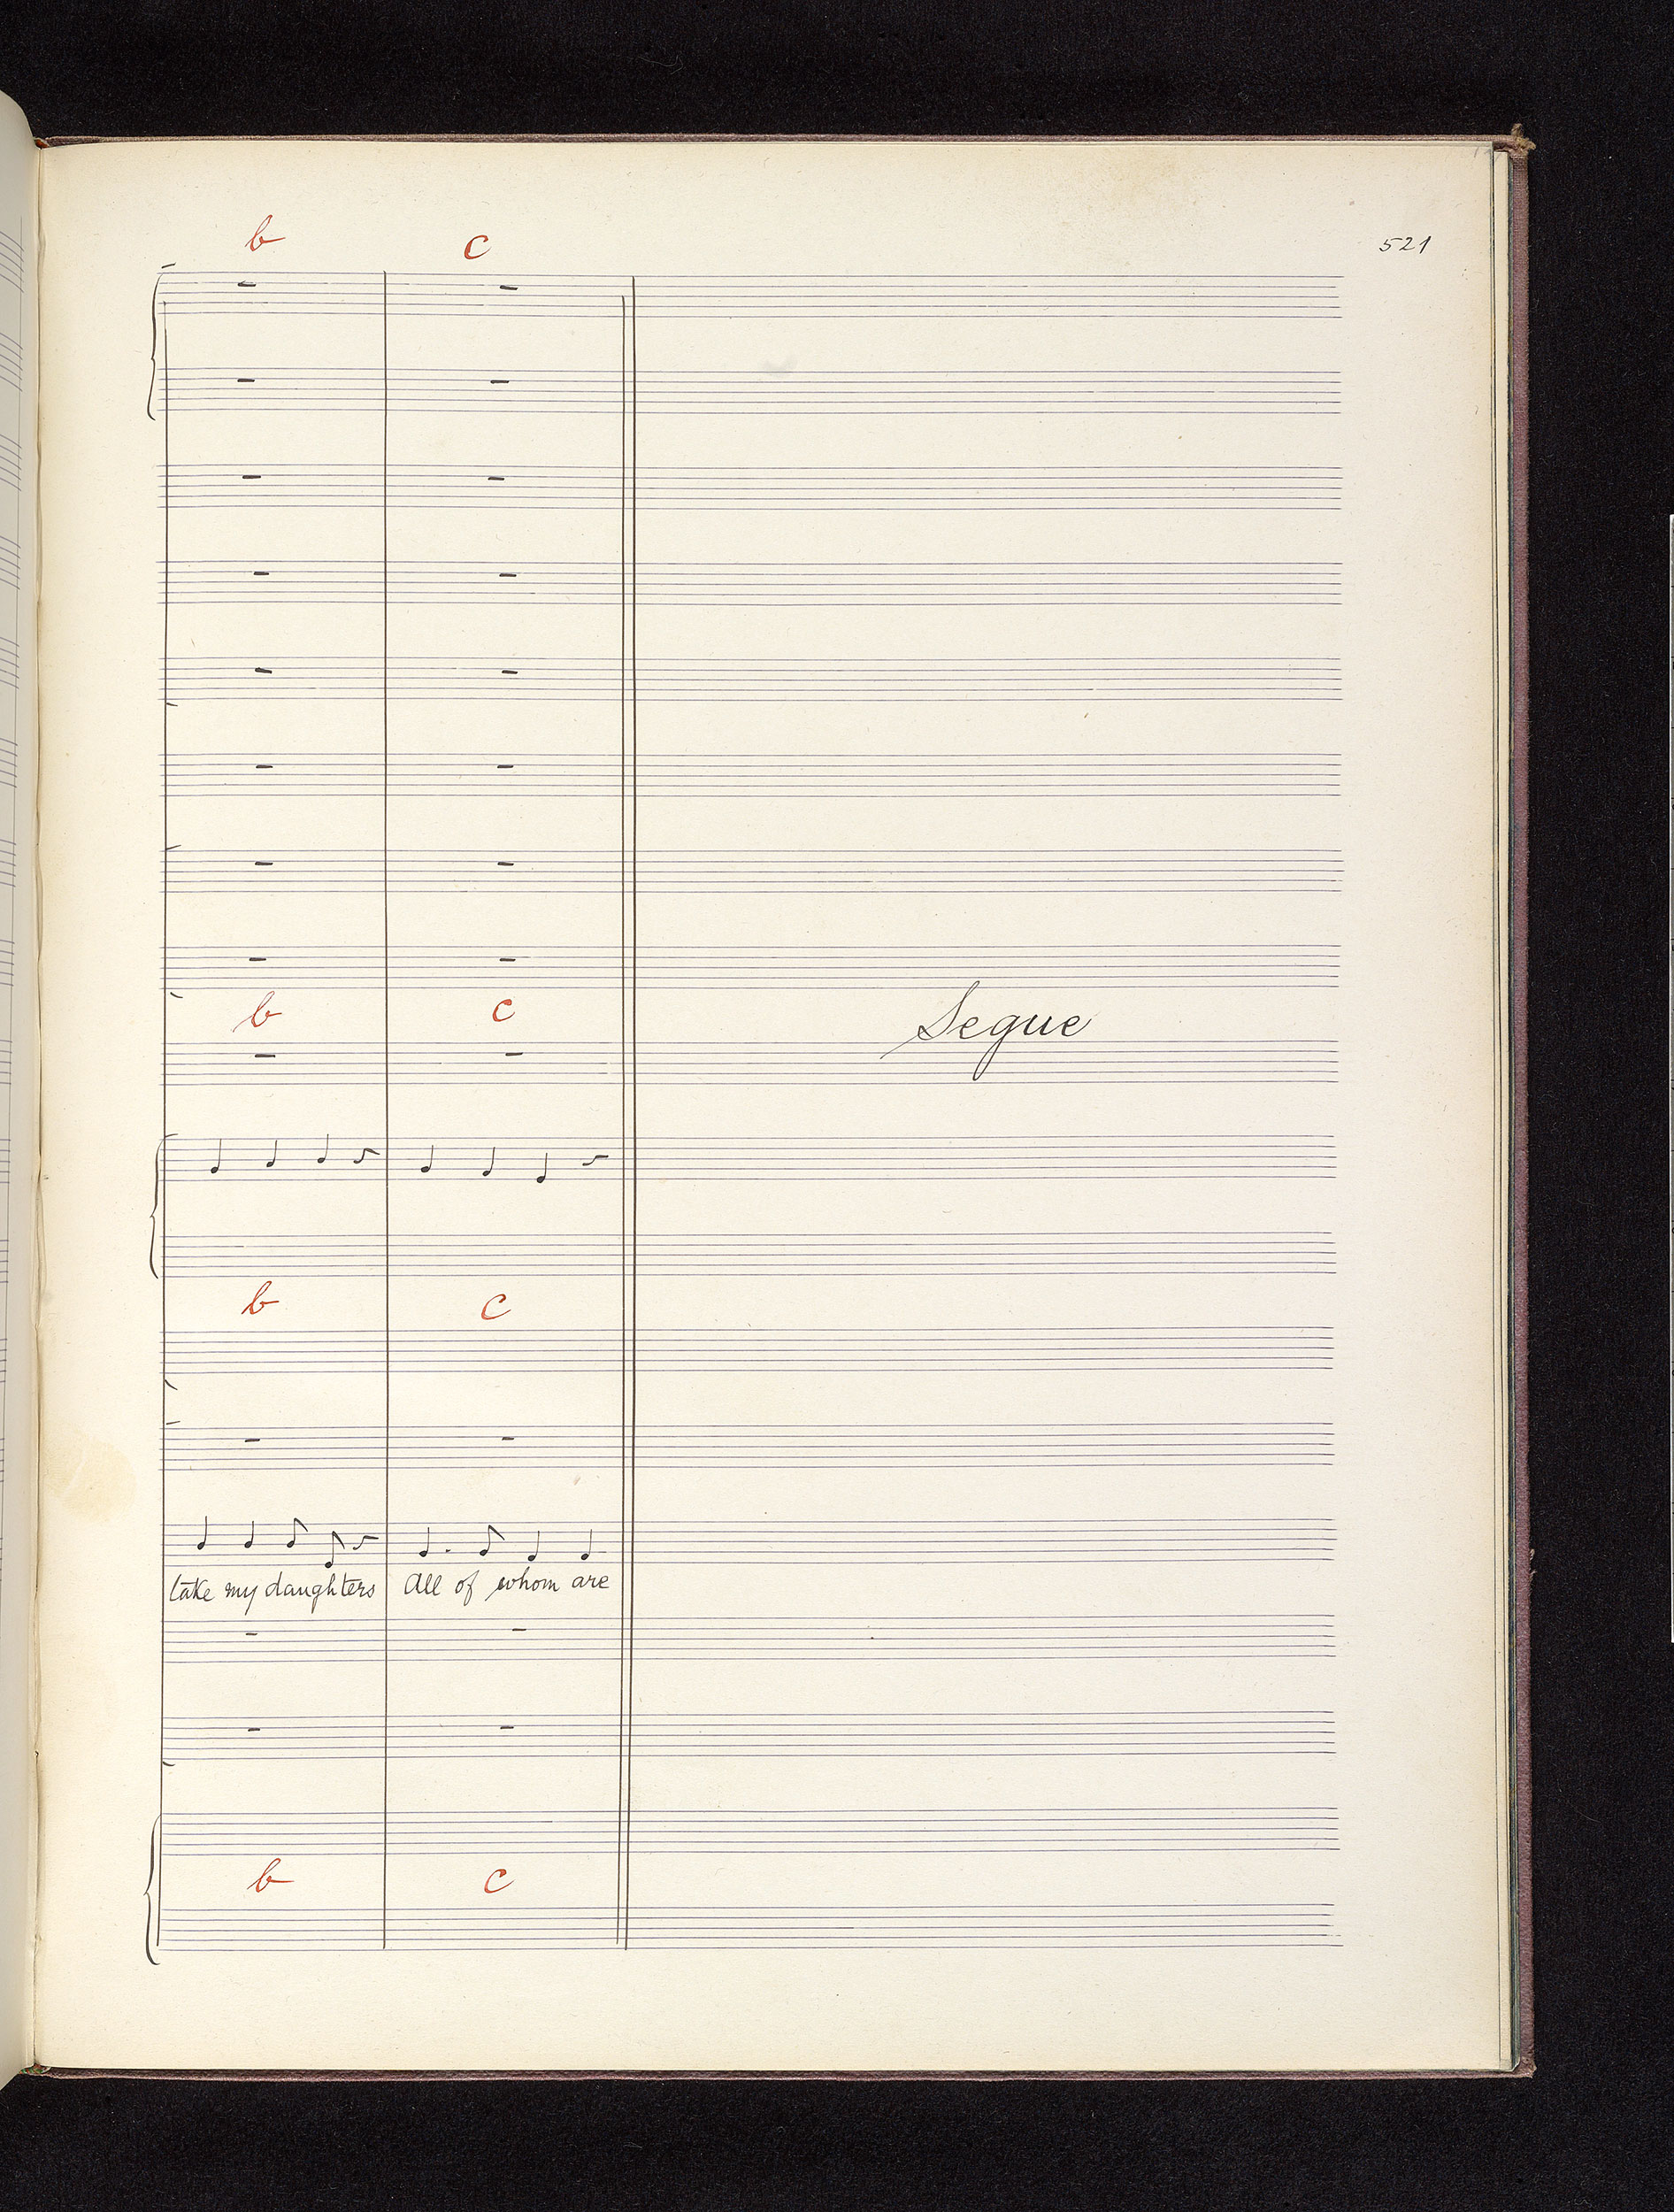 521
b c
b c
Segue
b c
take my daughters All of whom are
b c